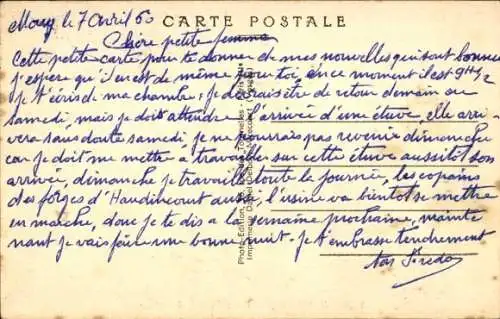 Mouy le 7 Avril 60
CARTE POSTALE
Chère petite femme
Cette petite carte pour te donner de mes nouvelles qui sont bonnes
j'espère qu'il en est de même pour toi, en ce moment il est 9H 1/2
je t'écris de ma chambre, je devrais être de retour demain ou
samedi, mais je dois attendre l'arrivée d'une étuve, elle arri-
vera sans doute samedi je ne pourrais pas revenir dimanche
car je dois me mettre a travailler sur cette étuve aussitot son
arrivée, dimanche je travaille toute la journée, les copains
des forges d'Audincourt aussi, l'usine va bientot se mettre
en marche, donc je te dis a la semaine prochaine, mainte
nant je vais faire une bonne nuit. je t'embrasse tendrement
ton